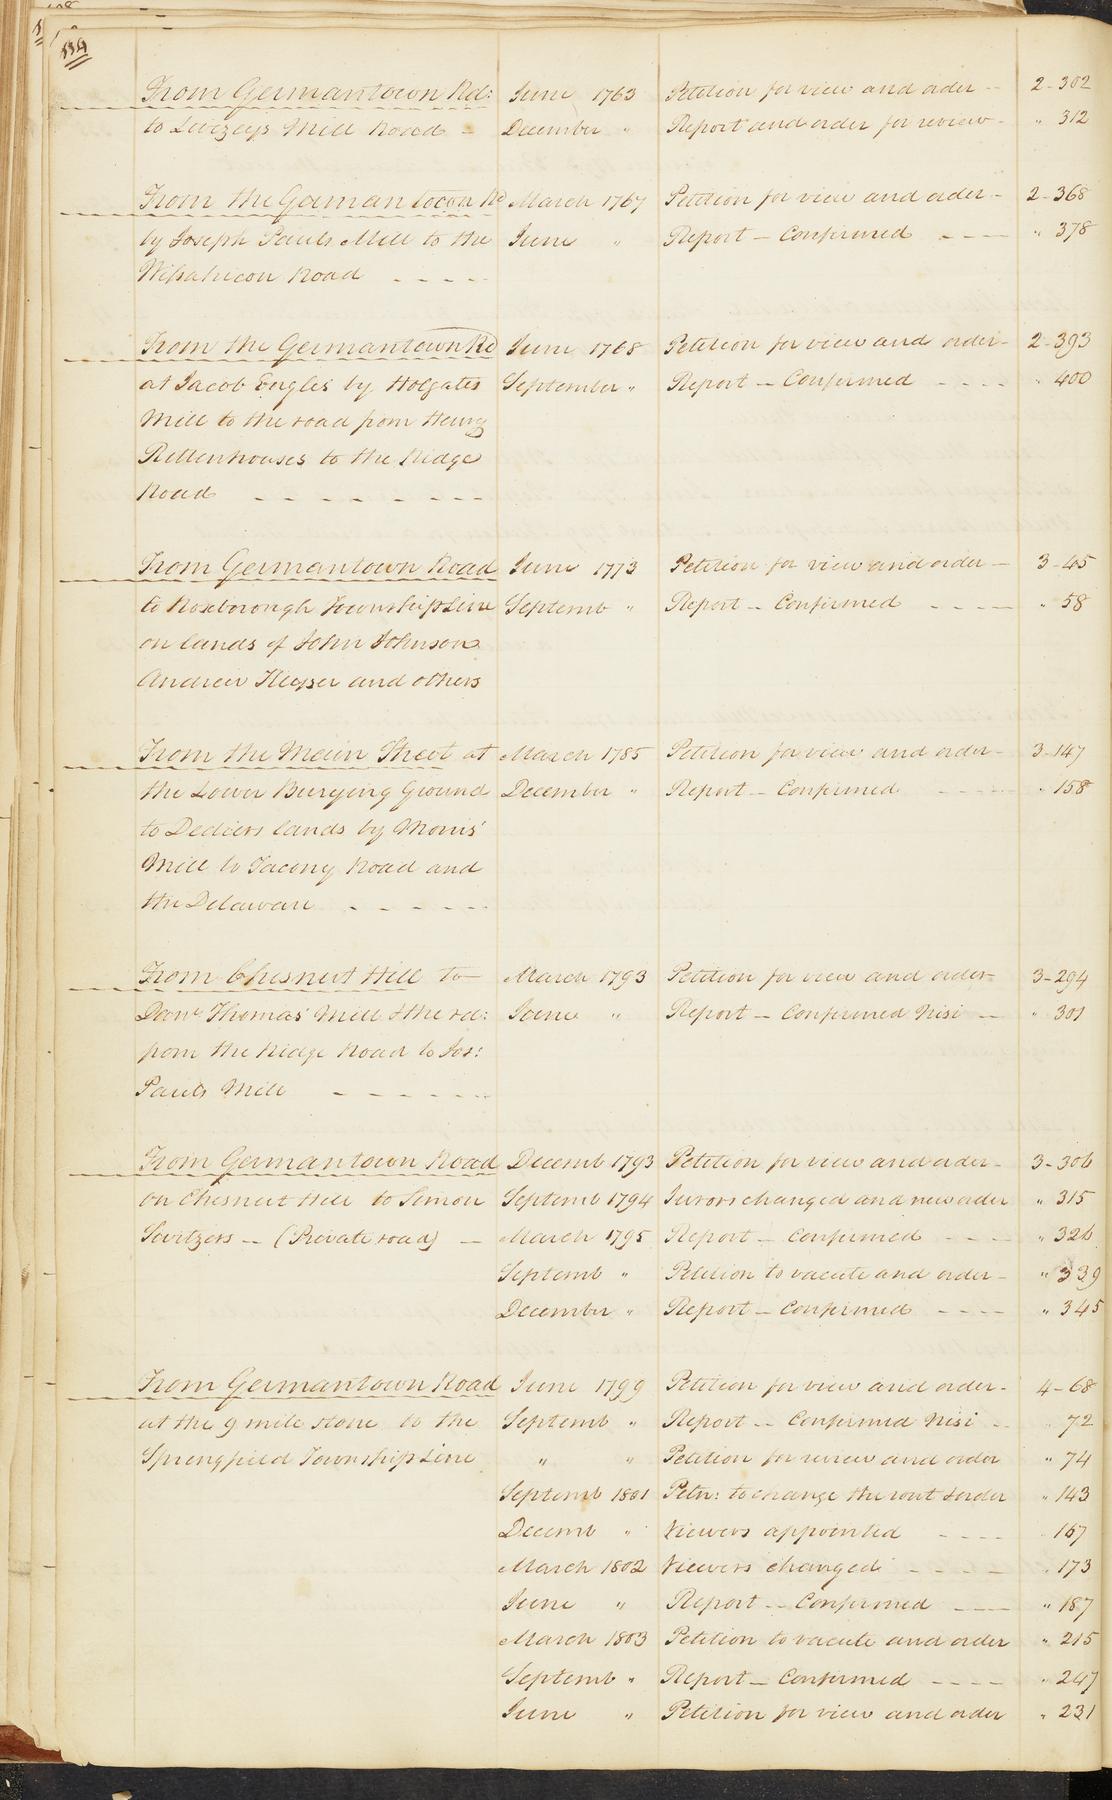 From Germantown Rd: June 1763 Petition for view and order -- 2-302
to Livezeys Mill Road - December " Report and order for review - " 312
From the Germantown Rd March 1767 Petition for view and order - 2-368
by Joseph Pauls Mill to the June " Report - Confirmed - - - " 378
Wissahicon Road - - - -
From the Germantown Rd June 1768 Petition for view and order - 2-393
at Jacob Engles by Holgates September " Report - Confirmed - - - - " 400
Mill to the road from Henry
Rittenhouses to the Ridge
Road - - - - - - -
From Germantown Road June 1773 Petition for view and order - 3-45
to Roxborough Township Line Septemb " Report - Confirmed - - - - " 58
on lands of John Johnson
Andrew Keyser and others
From the Main Street at March 1785 Petition for view and order - 3-147
the Lower Burying Ground December " Report - Confirmed - - - - " 158
to Dediers lands by Morris'
Mill to Tacony Road and
the Delaware - - - - - -
From Chesnut Hill to March 1793 Petition for view and order - 3-294
Danl Thomas' Mill & the rd: June " Report - Confirmed Nisi - " 301
from the Ridge Road to Jos:
Pauls Mill - - - - - -
From Germantown Road Decemb 1793 Petition for view and order - 3-306
on Chesnut Hill to Simon Septemb 1794 Jurors changed and new order " 315
(Private road) - March 1795 Report - Confirmed - - - " 326
Septemb " Petition to vacate and order - " 339
December " Report - Confirmed - - - - " 345
From Germantown Road June 1799 Petition for view and order - 4-68
at the 9 mile stone to the Septemb " Report - Confirmed Nisi - 72
Springfield Township Line " " Petition for review and order " 74
Septemb 1801 Petn: to change the rout & order " 143
Decemb " Viewers appointed - - - - 167
March 1802 Viewers changed - - - - " 173
June " Report - Confirmed - - - " 187
March 1803 Petition to vacate and order " 215
Septemb " Report - Confirmed - - - - " 247
June " Petition for view and order " 231